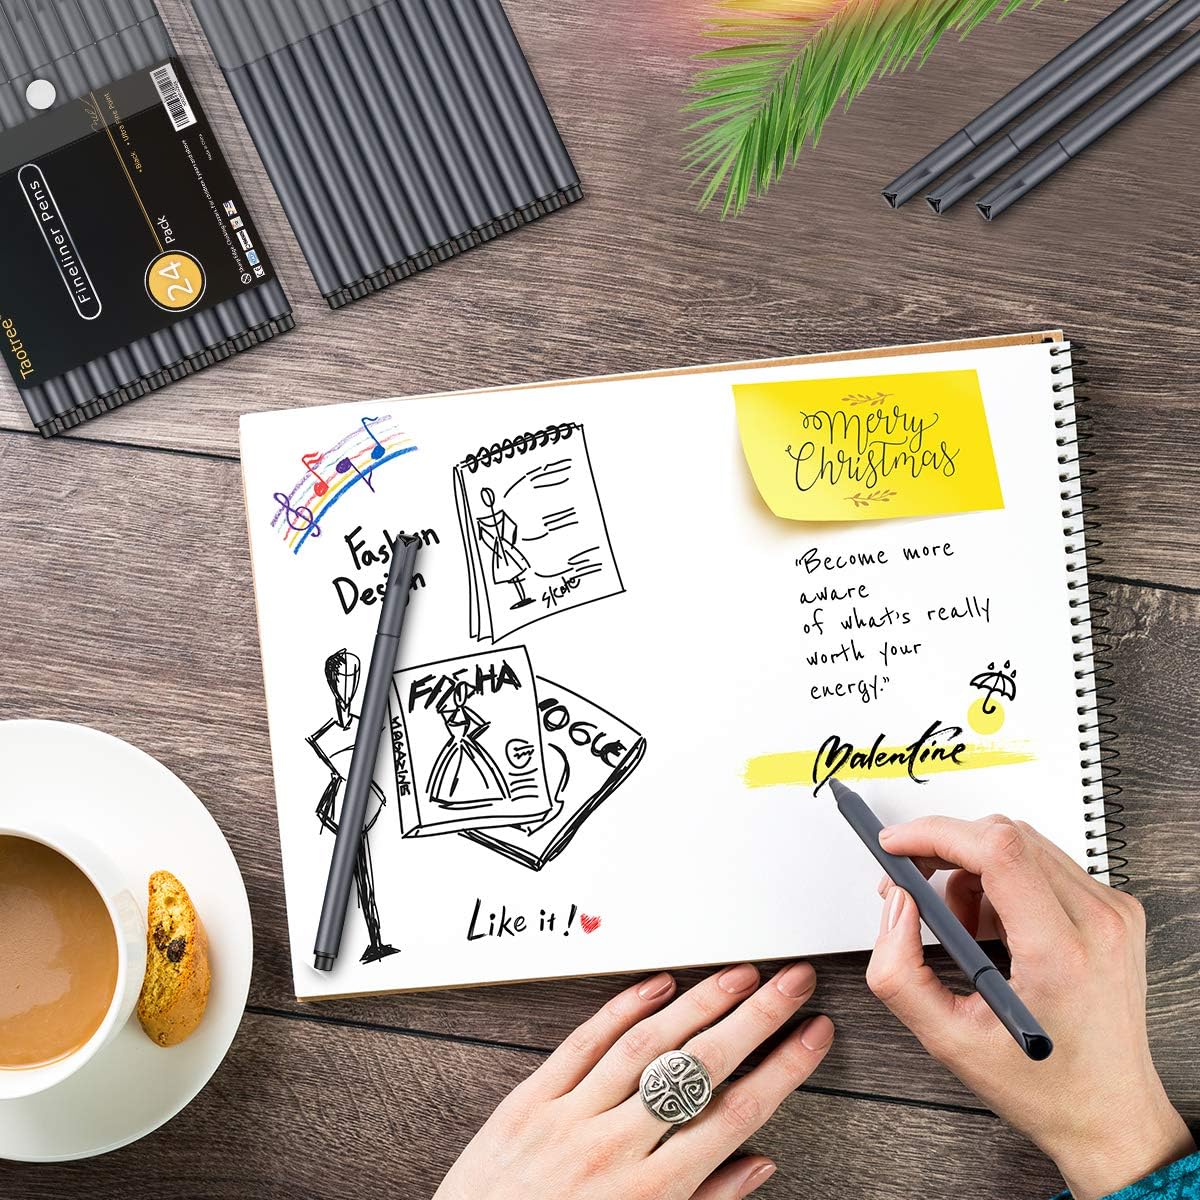 Taotree
Fineliner Pens
24
Pack
•Black • Ultra Fine Point
Merry
Christmas
Fashion
Design
Skate
FASHA
MAGAZINE
VOGUE
"Become more
aware
of what's really
worth your
energy."
Malentine
Like it!